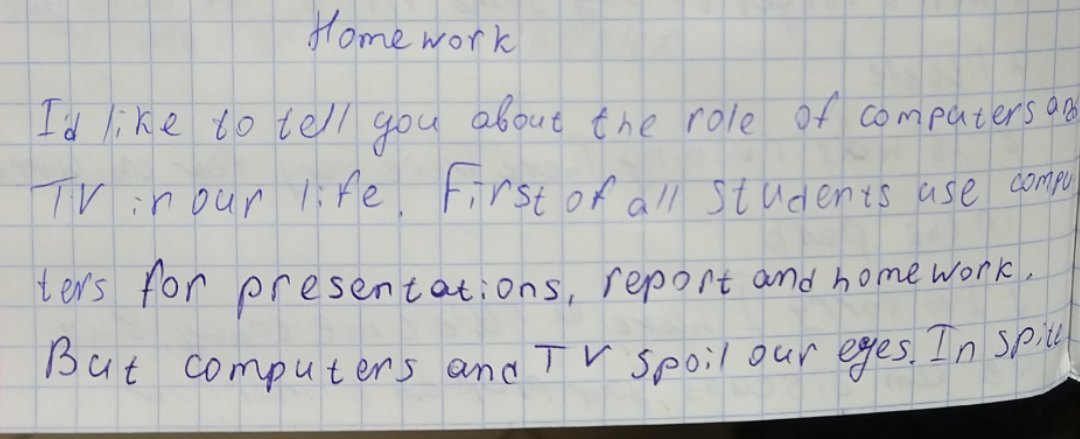 Homework
I'd like to tell you about the role of computers and
TV in our life. First of all students use compu
ters for presentations, report and homework.
But computers and TV spoil our eyes. In spite